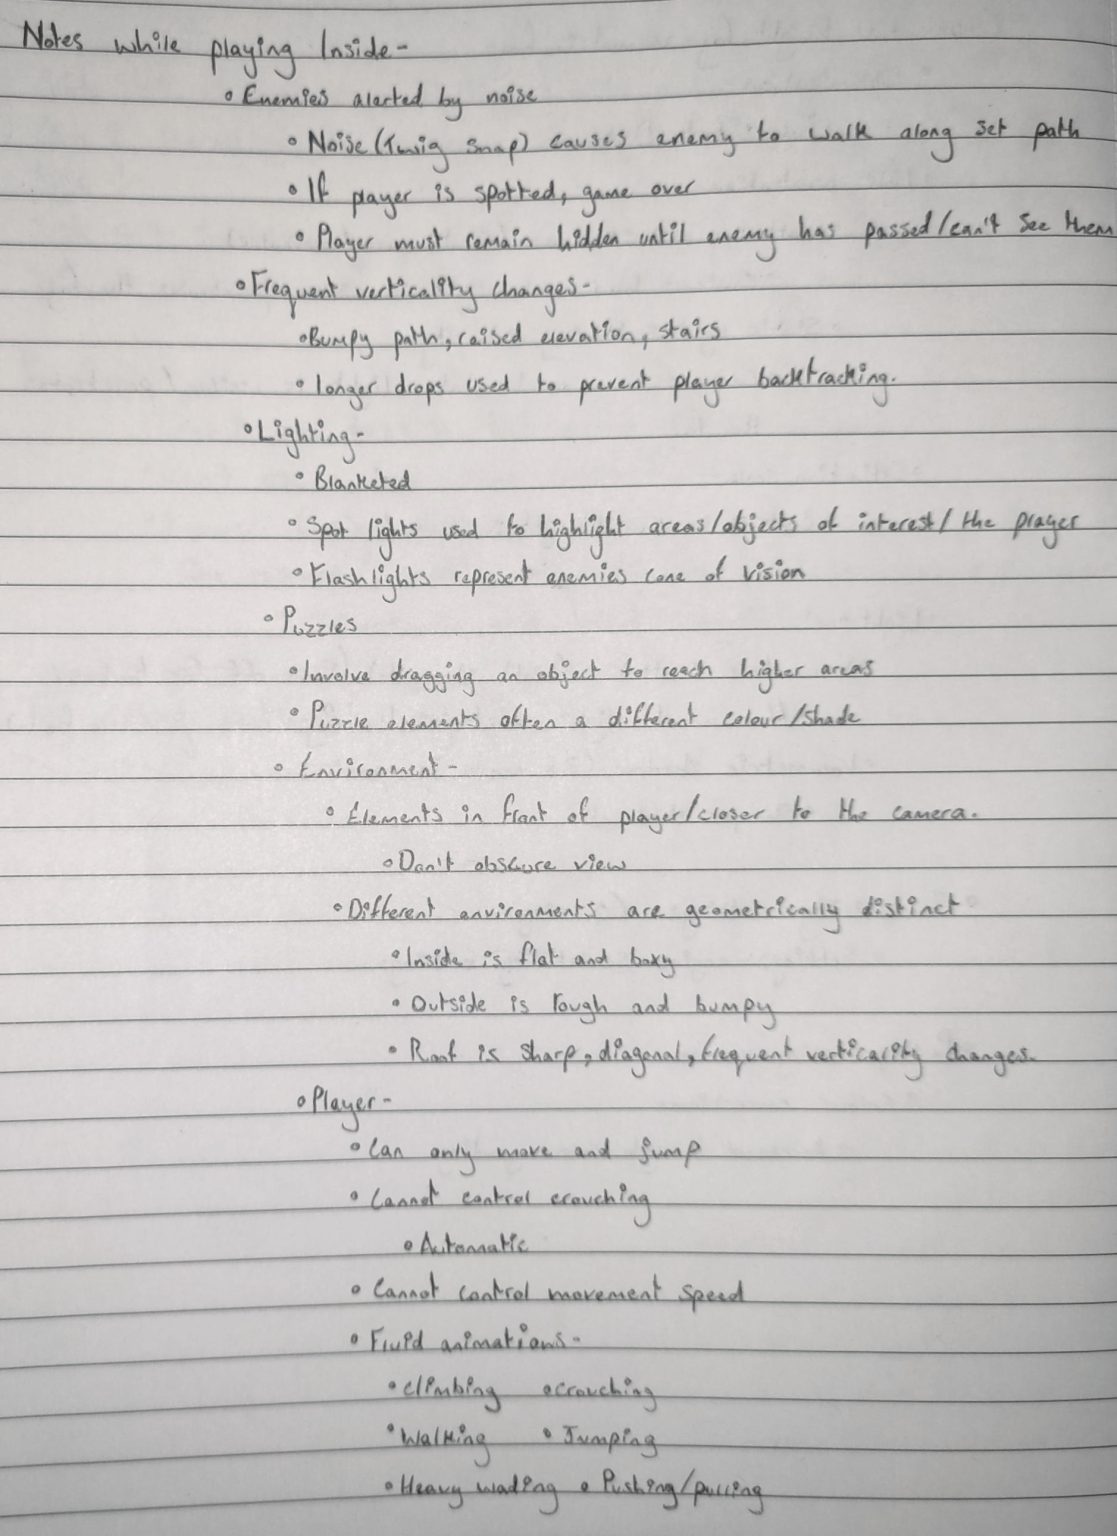 Notes while playing Inside-
• Enemies alerted by noise
• Noise (Twig Snap) causes enemy to walk along set path
• If player is spotted, game over
• Player must remain hidden until enemy has passed/can't see them
• Frequent verticality changes-
• Bumpy path, raised elevation, stairs
• longer drops used to prevent player backtracking.
• Lighting-
• Blanketed
• Spot lights used to highlight areas/objects of interest/the player
• Flashlights represent enemies cone of vision
• Puzzles
• Involve dragging an object to reach higher areas
• Puzzle elements often a different colour/shade
• Environment-
• Elements in front of player/closer to the camera.
• Don't obscure view
• Different environments are geometrically distinct
• Inside is flat and boxy
• Outside is rough and bumpy
• Roof is sharp, diagonal, frequent verticality changes.
• Player-
• Can only move and jump
• Cannot control crouching
• Automatic
• Cannot control movement speed
• Fluid animations-
• climbing • crouching
• Walking • Jumping
• Heavy wading • Pushing/pulling